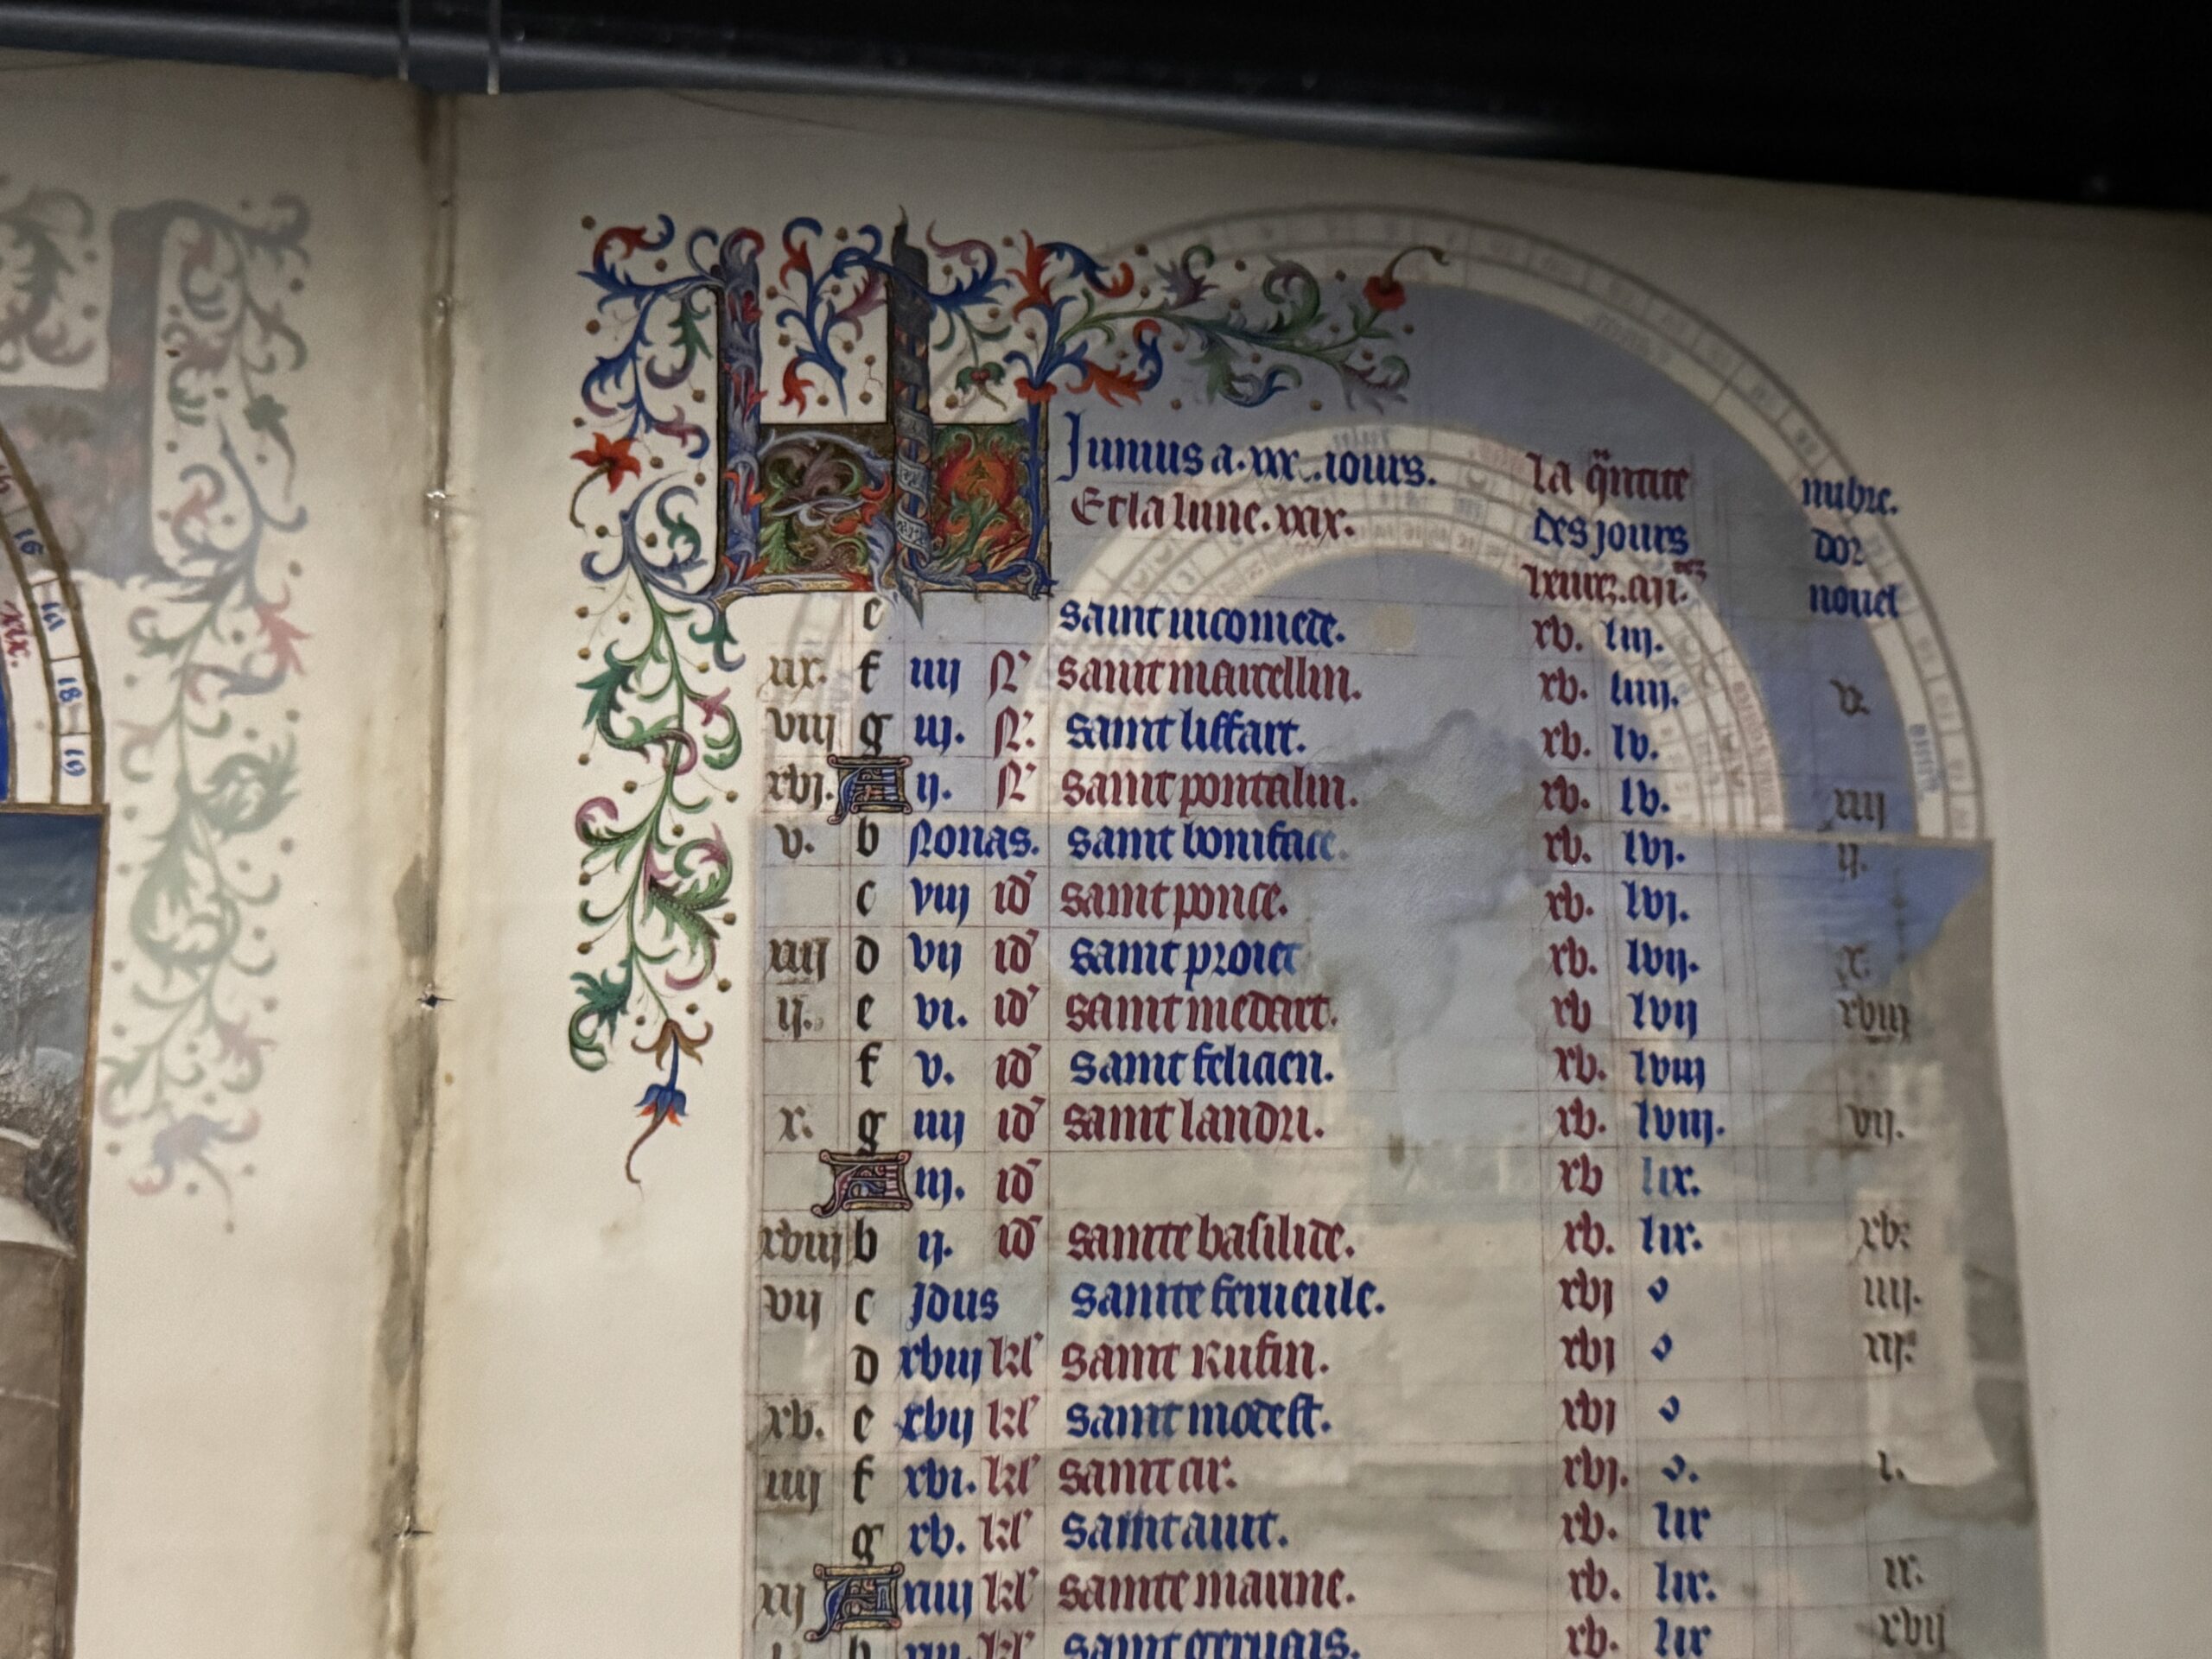 Junius a. xxx. iours.
Et la lune. xxix.
la q̃ntite
des jours
nubre.
dor
nouel
e saint nicomede. xv. liij.
f iiij N' saint marcellin. xv. liiij. v.
viij g iij. N'. saint liffart. xv. lv.
xvj. A ij. N' saint pontalin. xv. lv. xiij
v. b Nonas. saint boniface. xv. lvj. ij.
c viij id' saint ponce. xv. lvj.
xiij d vij id' saint proiet xv. lvij. x.
ij. e vi. id' saint medart. xv lvij xviij
f v. id' saint felicien. xv. lviij
x. g iiij id' saint landri. xv. lviij. vij.
A iij. id' xv lix.
xviij b ij. id' sainte basilide. xv. lix. xv.
vij c Jdus sainte felicule. xvj o iiij.
d xviij kl' saint Rufin. xvj o
xv. e xvij kl' saint modest. xvj o
iiij f xvi. kl' saint cir. xvj. o. i.
g xv. kl' saint auit. xv. lix
xij A xiiij kl' sainte marine. xv. lix. ix.
b xiij kl' saint geruais. xv. lix xvij
16
18
19